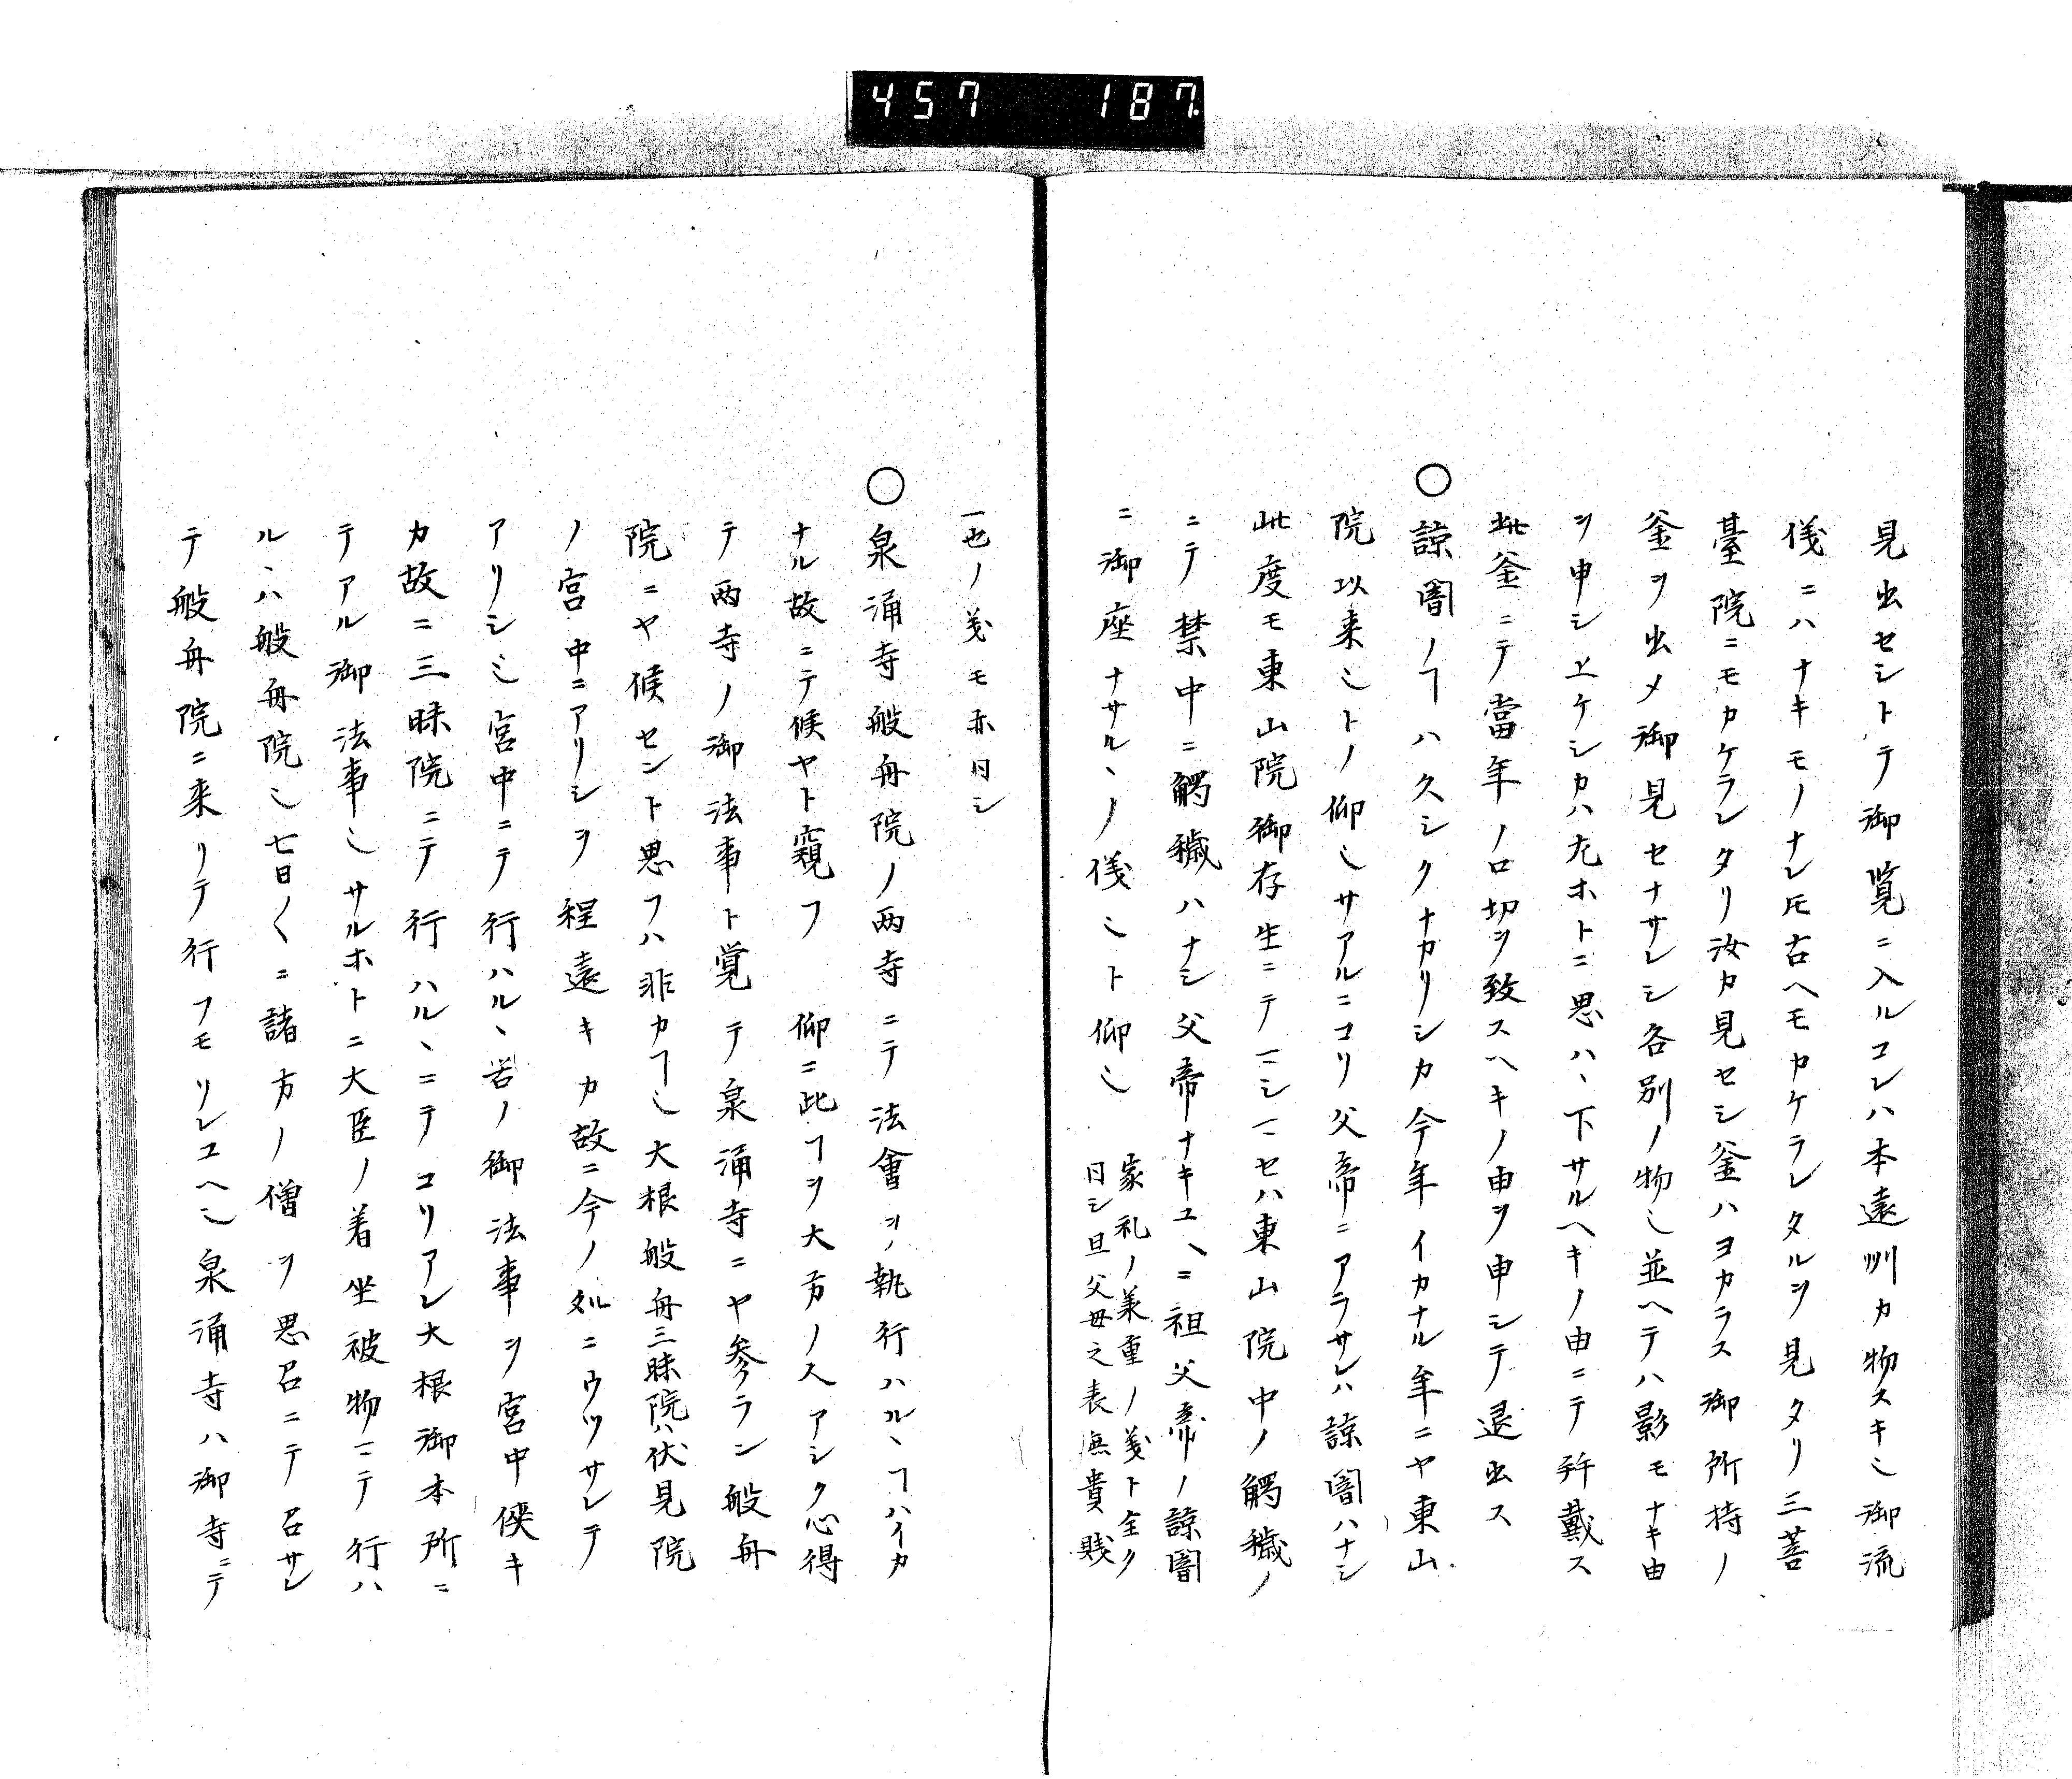 457 187
見出セシトテ御覧ニ入ルコレハ本遠州カ物スキ也御流
儀ニハナキモノナレ𪜈右ヘモカケラレタルヲ見タリ三菩
臺院ニモカケラレタリ汝カ見セシ釜ハヨカラス御所持ノ
釜ヲ出メ御見セナサレシ各別ノ物也並ヘテハ影モナキ由
ヲ申シ上ケシカハ左ホトニ思ハヽ下サルヘキノ由ニテ拝戴ス
此釜ニテ當年ノ口切ヲ致スヘキノ由ヲ申シテ退出ス
○諒闇ノヿハ久シクナカリシカ今年イカナル年ニヤ東山
院以来也トノ仰也サアルニコリ父帝ニアラサレハ諒闇ハナシ
此度モ東山院御存生ニテマシマセハ東山院中ノ觸穢ノ
ニテ禁中ニ觸穢ハナシ父帝ナキユヘニ祖父帝ノ諒闇
ニ御座ナサルヽノ儀也ト仰也
家礼ノ兼重ノ義ト全ク
同シ且父母之表無貴賤
一也ノ義モ亦同シ
○泉涌寺般舟院ノ両寺ニテ法會ヲ執行ハルヽヿハイカ
ナル故ニテ候ヤト窺フ 仰ニ此ヿヲ大方ノ人アシク心得
テ両寺ノ御法事ト覚テ泉涌寺ニヤ参ラン般舟
院ニヤ候セント思フハ非カヿ也大根般舟三昧院ハ伏見院
ノ宮中ニアリシヲ程遠キカ故ニ今ノ処ニウツサレテ
アリシ也宮中ニテ行ハルヽ筈ノ御法事ヲ宮中侠キ
カ故ニ三昧院ニテ行ハルヽニテコリアレ大根御本所ニ
テアル御法事也サルホトニ大臣ノ着坐被物ニテ行ハ
ルヽハ般舟院也七日〱ニ諸方ノ僧ヲ思召ニテ召サレ
テ般舟院ニ来リテ行フモリレユヘ也泉涌寺ハ御寺ニテ